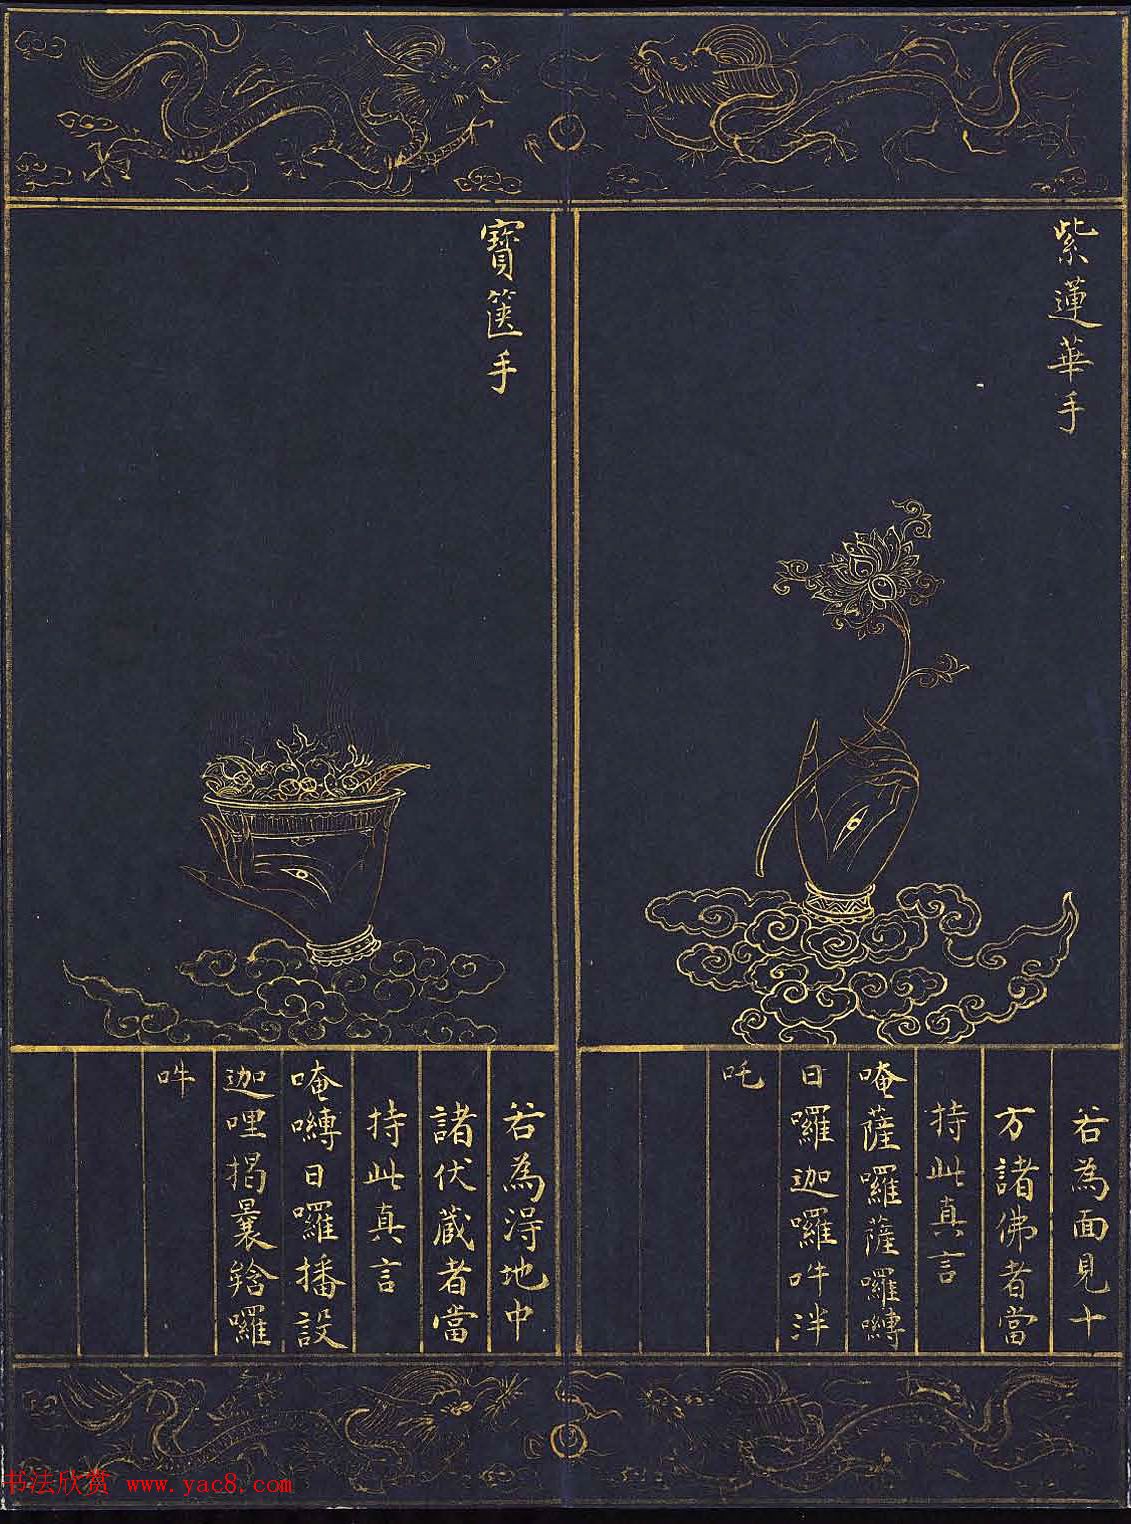 紫蓮華手
若為面見十
方諸佛者當
持此真言
唵薩囉薩囉嚩
日囉迦囉吽泮
吒
寶篋手
若為得地中
諸伏藏者當
持此真言
唵嚩日囉播設
迦哩揭曩𤚥囉
吽
书法欣赏 www.yac8.com